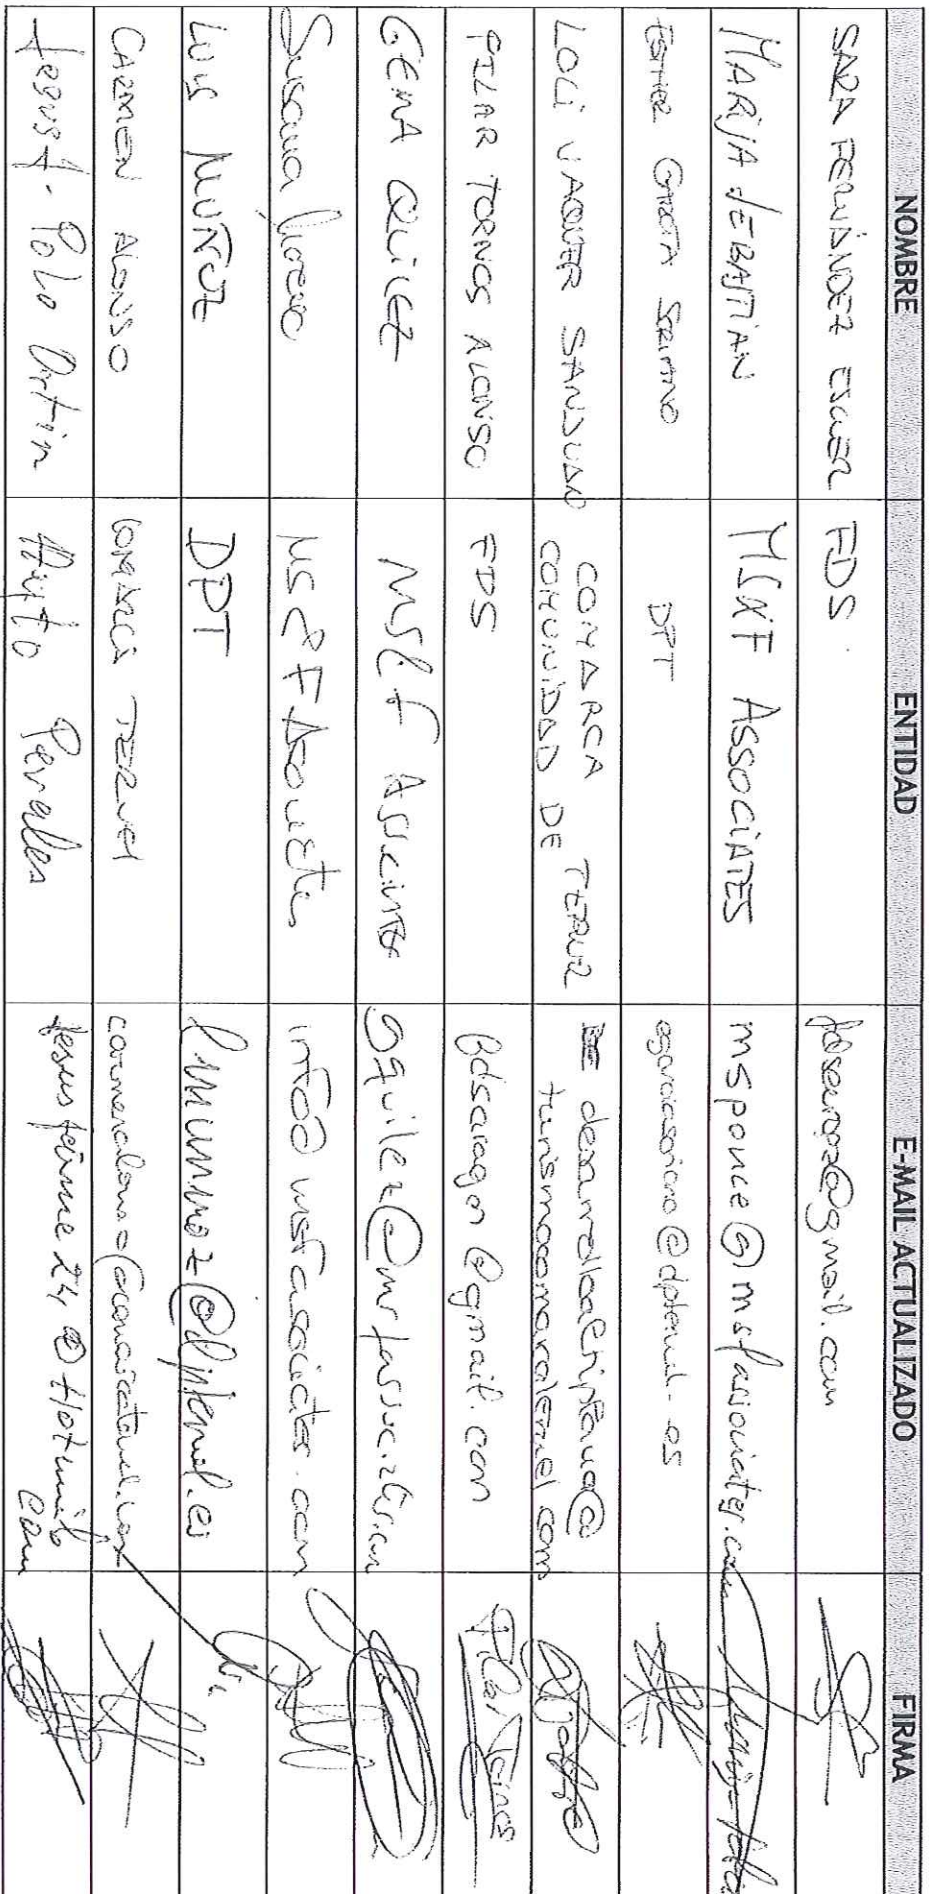 NOMBRE ENTIDAD E-MAIL ACTUALIZADO FIRMA
SARA FERNÁNDEZ ESCUER FDS. fdseuropa@gmail.com
MARIJA SEBASTIAN MSXF ASSOCIATES msponce@msfassociates.com
ESTHER GARCIA SORIANO DPT egarciasoriano@dpteruel.es
LOLI VAQUER SANJUAN COMARCA COMUNIDAD DE TERUEL desarrolloaliriptaua@
turismocomarcateruel.com
PILAR TORNOS ALONSO FDS fdsaragon@gmail.com Pilar Tornos
GEMA QUILEZ MSF Associates gquilez@msfassociates.com
Susana MSF Associates info@msfassociates.com
Luis MUÑOZ DPT lmunnoz@dpteruel.es
CARMEN ALONSO COMARCA TERUEL carmenalonso@comarcateruel.com
Jesus J. Polo Ortin Perales jesusjaime24@Hotmail.
com